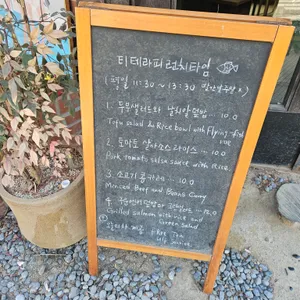 티테라피 런치타임
(평일 11:30 ~ 13:30
1. 두부샐러드와 날치알덮밥 10.0
Tofu salad & Rice bowl with Flying-fish roe
2. 토마토 살사소스 라이스 10.0
Pork tomato salsa sauce with Rice
3. 소고기 콩카레 10.0
Minced Beef and Beans Curry
4. 12.0
Grilled salmon with rice and
Green Salad
Tea